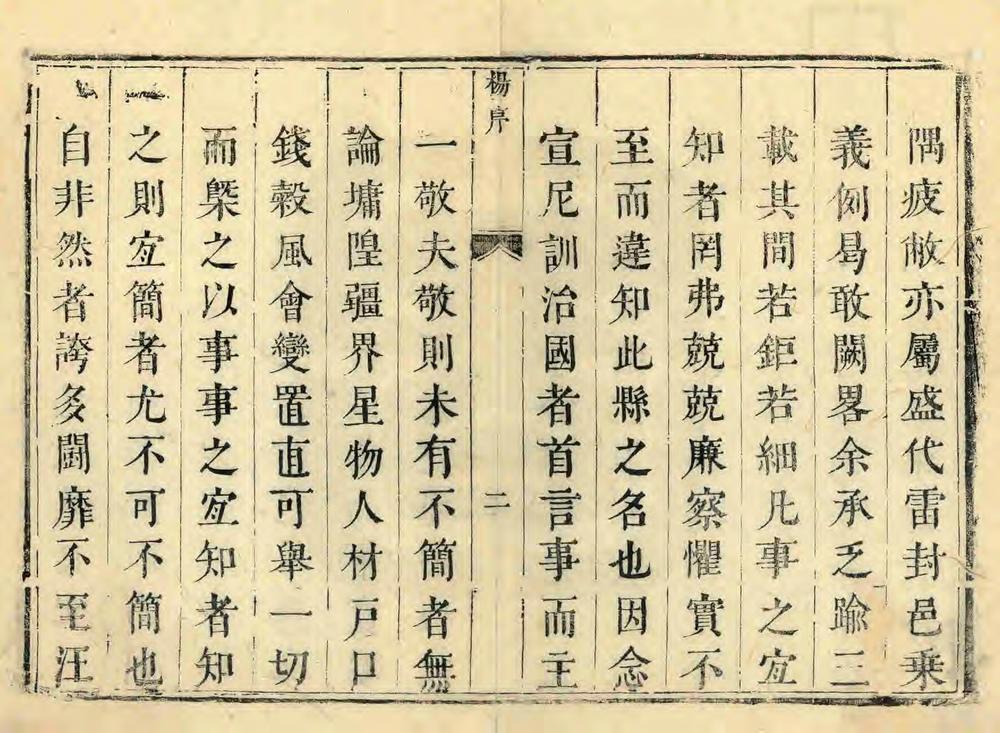 隅疲敝亦屬盛代雷封邑乗
義例曷敢闕畧余承乏踰三
載其間若鉅若細凡事之宐
知者罔弗兢兢廉察懼實不
至而違知此縣之名也因念
宣尼訓治國者首言事而主
楊序
二
一敬夫敬則未有不簡者無
論墉隍疆界星物人材戸口
錢穀風會變置直可舉一切
而槩之以事事之宐知者知
之則宐簡者尤不可不簡也
自非然者誇多鬬靡不至汪